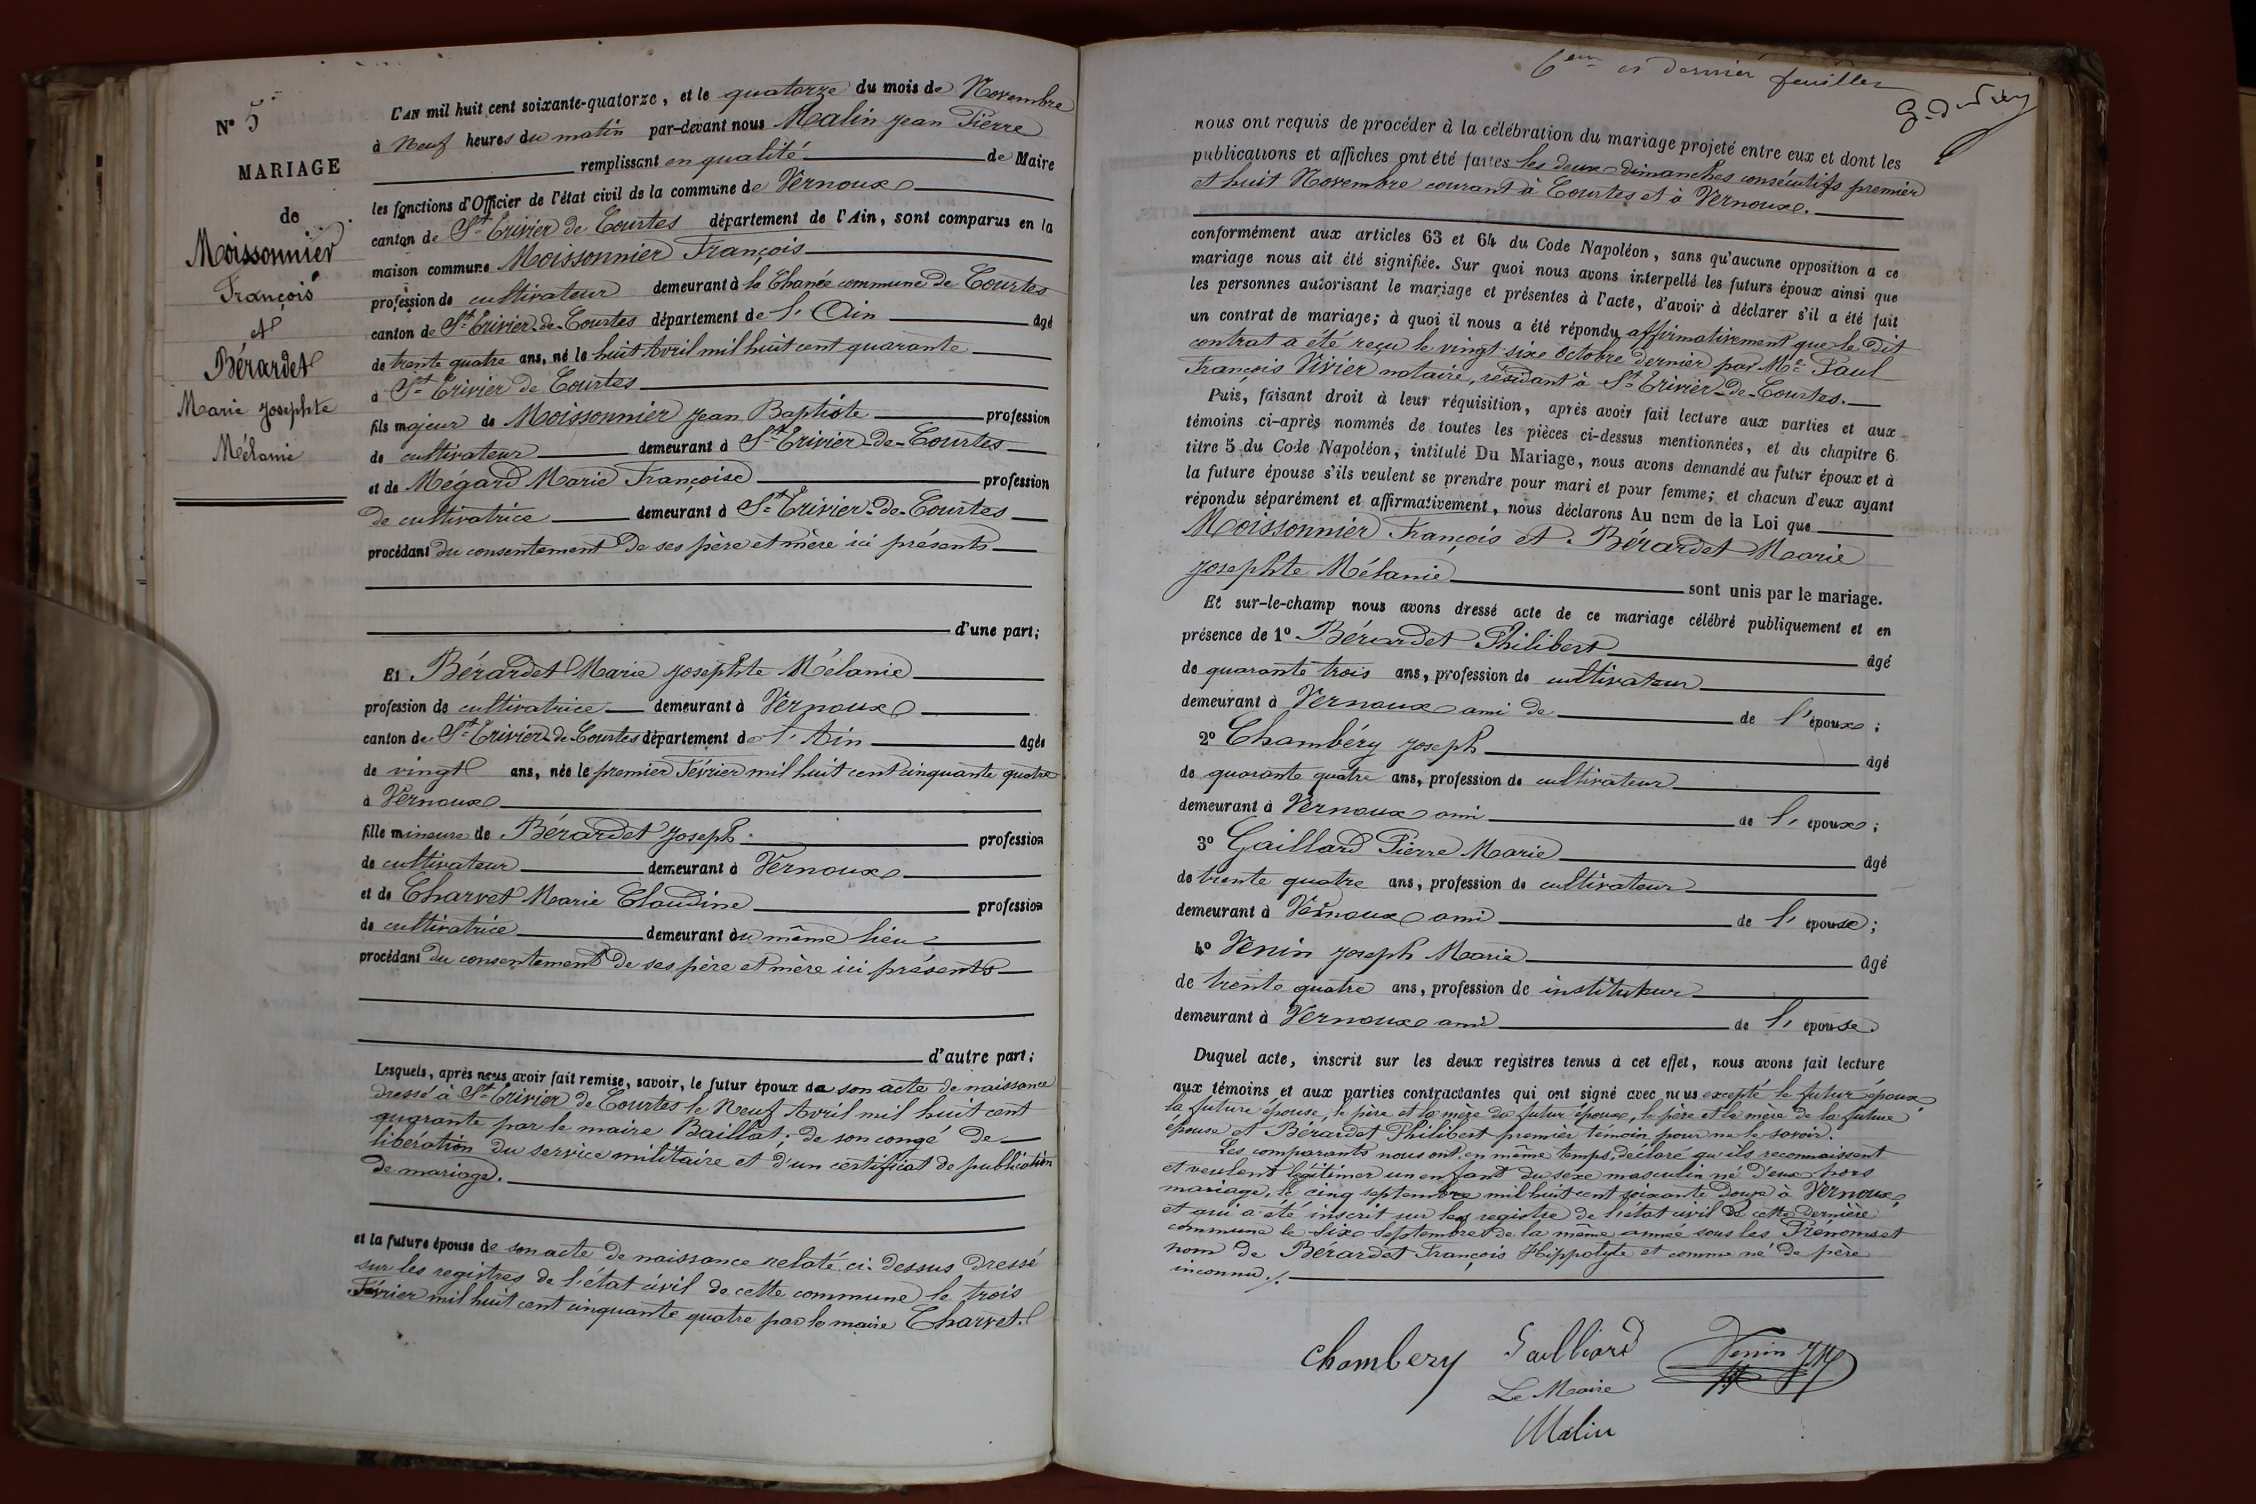 N° 5
MARIAGE
de
Moissonnier
François
et
Bérardet
Marie Josephte
Mélanie
L'AN mil huit cent soixante-quatorze, et le quatorze du mois de Novembre
à Neuf heures du matin par-devant nous Malin Jean Pierre
remplissant en qualité de Maire
les fonctions d'Officier de l'état civil de la commune de Vernoux
canton de St Trivier de Courtes département de l'Ain, sont comparus en la
maison commune Moissonnier François
profession de cultivateur demeurant à la Chanée commune de Courtes
canton de St Trivier-de-Courtes département de l'Ain âgé
de trente quatre ans, né le huit Avril mil huit cent quarante
à St Trivier de Courtes
fils majeur de Moissonnier Jean Baptiste profession
de cultivateur demeurant à St Trivier-de-Courtes
et de Mégard Marie Françoise profession
de cultivatrice demeurant à St Trivier-de-Courtes
procédant du consentement de ses père et mère ici présents
d'une part;
Et Bérardet Marie Josephte Mélanie
profession de cultivatrice demeurant à Vernoux
canton de St Trivier-de-Courtes département de l'Ain âgée
de vingt ans, née le premier Février mil huit cent cinquante quatre
à Vernoux
fille mineure de Bérardet Joseph profession
de cultivateur demeurant à Vernoux
et de Charvet Marie Claudine profession
de cultivatrice demeurant du même lieu
procédant du consentement de ses père et mère ici présents
d'autre part;
Lesquels, après nous avoir fait remise, savoir, le futur époux de son acte de naissance
dressé à St Trivier de Courtes le Neuf Avril mil huit cent
quarante par le maire Baillat; de son congé de
libération du service militaire et d'un certificat de publication
de mariage.
et la future épouse de son acte de naissance relaté ci-dessus dressé
sur les registres de l'état civil de cette commune le trois
Février mil huit cent cinquante quatre par le maire Charvet.
6eme et dernier feuillet
nous ont requis de procéder à la célébration du mariage projeté entre eux et dont les
publications et affiches ont été faites les deux dimanches consécutifs premier
et huit Novembre courant à Courtes et à Vernoux.
conformément aux articles 63 et 64 du Code Napoléon, sans qu'aucune opposition à ce
mariage nous ait été signifiée. Sur quoi nous avons interpellé les futurs époux ainsi que
les personnes autorisant le mariage et présentes à l'acte, d'avoir à déclarer s'il a été fait
un contrat de mariage; à quoi il nous a été répondu affirmativement que le dit
contrat a été reçu le vingt-six Octobre dernier par Me Paul
François Vivier notaire, résidant à St Trivier-de-Courtes.
Puis, faisant droit à leur réquisition, après avoir fait lecture aux parties et aux
témoins ci-après nommés de toutes les pièces ci-dessus mentionnées, et du chapitre 6
titre 5 du Code Napoléon, intitulé Du Mariage, nous avons demandé au futur époux et à
la future épouse s'ils veulent se prendre pour mari et pour femme; et chacun d'eux ayant
répondu séparément et affirmativement, nous déclarons Au nom de la Loi que
Moissonnier François et Bérardet Marie
Josephte Mélanie sont unis par le mariage.
Et sur-le-champ nous avons dressé acte de ce mariage célébré publiquement et en
présence de 1° Bérardet Philibert âgé
de quarante trois ans, profession de cultivateur
demeurant à Vernoux ami de de l'époux;
2° Chambéry Joseph âgé
de quarante quatre ans, profession de cultivateur
demeurant à Vernoux ami de l'époux;
3° Gaillard Pierre Marie âgé
de trente quatre ans, profession de cultivateur
demeurant à Vernoux ami de l'épouse;
4° Venin Joseph Marie âgé
de trente quatre ans, profession de instituteur
demeurant à Vernoux ami de l'épouse.
Duquel acte, inscrit sur les deux registres tenus à cet effet, nous avons fait lecture
aux témoins et aux parties contractantes qui ont signé avec nous excepté le futur époux,
la future épouse, le père et la mère du futur époux, le père et la mère de la future
épouse et Bérardet Philibert premier témoin pour ne le savoir.
Les comparants nous ont en même temps, déclaré qu'ils reconnaissent
et veulent légitimer un enfant du sexe masculin né d'eux hors
mariage, le cinq septembre mil huit cent soixante douze à Vernoux,
et qui a été inscrit sur les registre de l'état civil de cette dernière
commune le six Septembre de la même année sous les Prénoms et
nom de Bérardet François Hippolyte et comme né de père
inconnu./.
Chambery Gailliard Venin JM
Le Maire
Malin